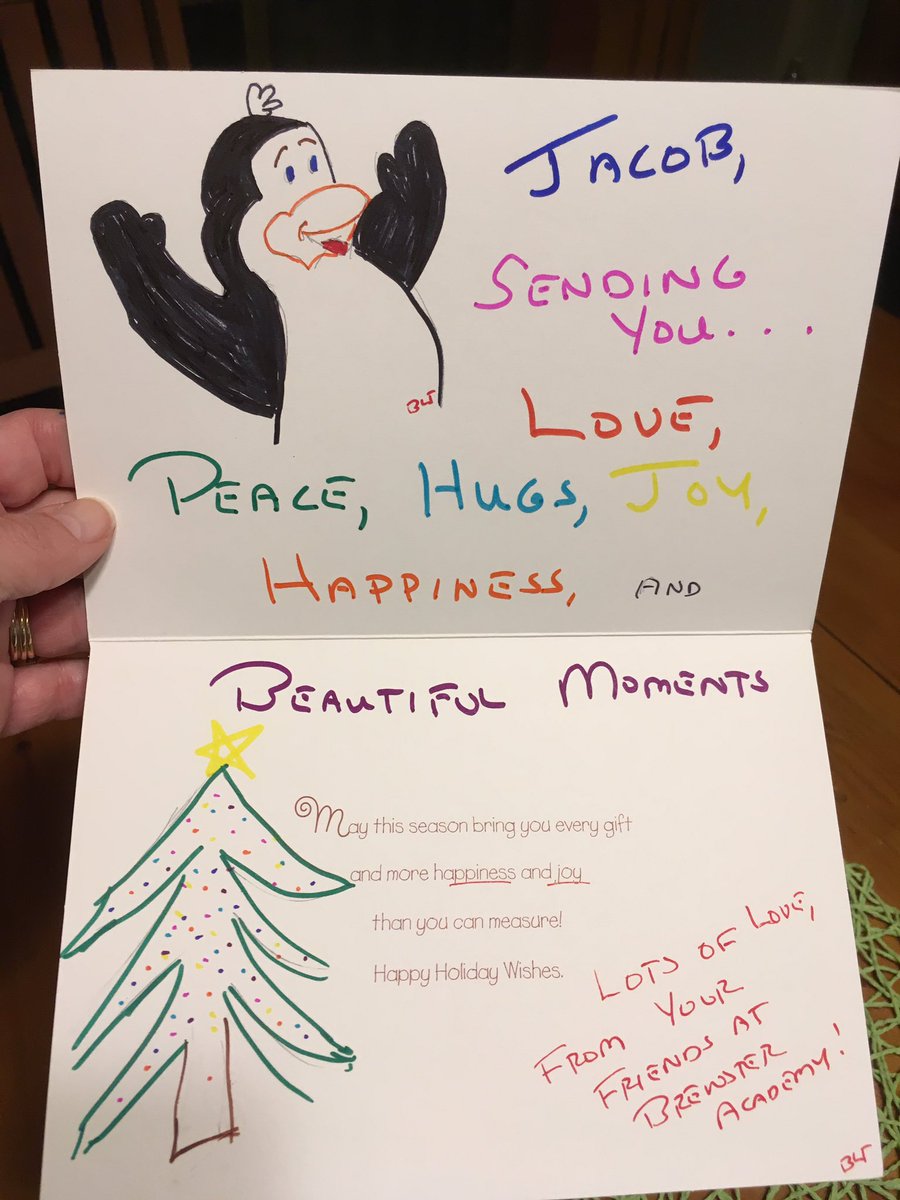 JACOB,
SENDING
YOU. . . .
LOVE,
PEACE, HUGS, JOY,
HAPPINESS, AND
BEAUTIFUL MOMENTS
May this season bring you every gift
and more happiness and joy
than you can measure!
Happy Holiday Wishes.
LOTS OF LOVE,
FROM YOUR
FRIENDS AT
BREWSTER
ACADEMY!